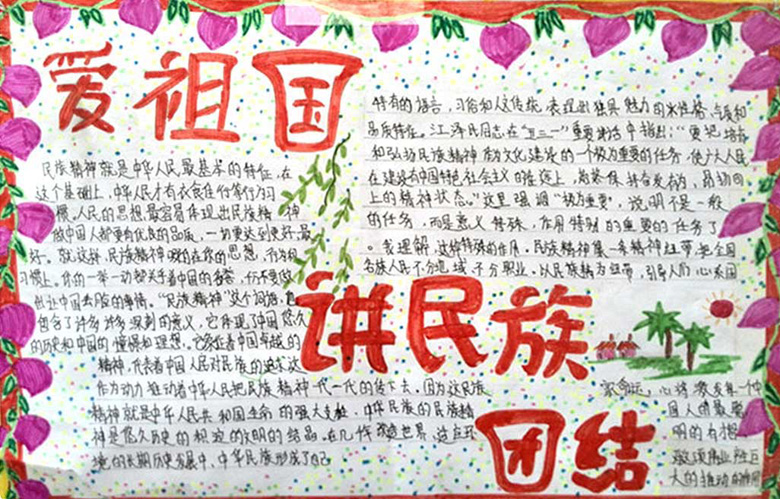 爱祖国
民族精神就是中华人民最基本的特征,在
这个基础上,中华人民才有衣食住行等行为习
惯,人民的思想最容易体现出民族精神
做中国人都要有优良的品质,一切要达到更好最
好。就这样,民族精神映在你的思想,行为和
习惯上。你的一举一动都关乎着中国的名誉,切不要做
出让中国去脸的事情。“民族精神”这个词语,包
包含了许多许多深刻的意义,它体现了中国悠久
的历史和中国的憧憬和理想。它象征着中国卓越的
精神,代表着中国人民对民族的追求这
作为动力推动着中华人民把民族精神一代一代的传下去。因为这民族
精神就是中华人民共和国生命的强大支柱。中华民族的民族精
神是悠久历史的积淀的文明的结晶。在几作改造世界,适应环
境的长期历史发展中,中华民族形成了自己
特有的语言,习俗和人文传统,表现出独具魅力的水性格、气质和
品质特征。江泽民同志在“五三一”重要讲话中指出:“要把培育
和弘扬民族精神作为文化建设的一个极为重要的任务,使广大人民
在建设有中国特色社会主义的道路上,始终保持奋发有为,昂扬向
上的精神状态。”这里强调“极为重要”,说明不是一般
的任务,而是意义特殊,作用特别的重要的任务了
。我理解,这种特殊的作用。民族精神像一条精神纽带,把全国
各族人民不分地域,不分职业,以民族精为纽带,引导人们心系国
讲民族
家命运,心将激发每一个
国人的最高
明的有想
敬颂伟业胜巨
大的推动的作用
团结